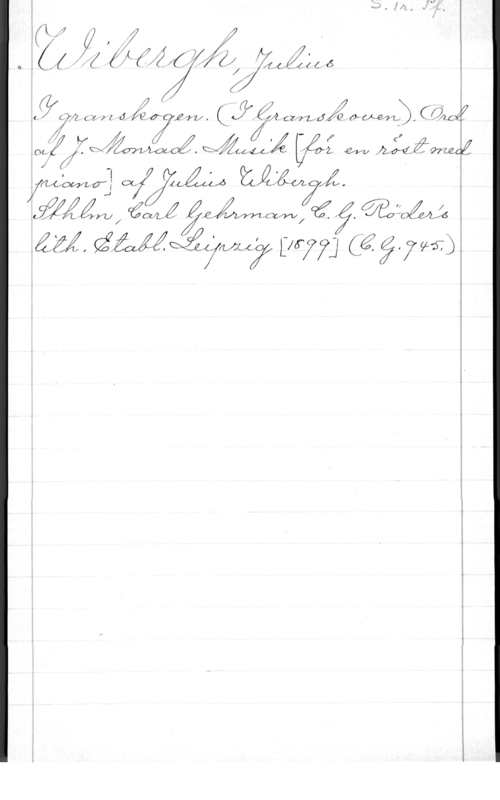 S. 1 r. Pf.
Wibergh, Julius
I granskogen. (I Granskoven). Ord
af J. Monrad. Musik [för en röst med
piano] af Julius Wibergh.
Sthlm, Carl Gehrman, C. G. Röder's
lith. Etabl. Leipzig [1899] (C. G. 945.)